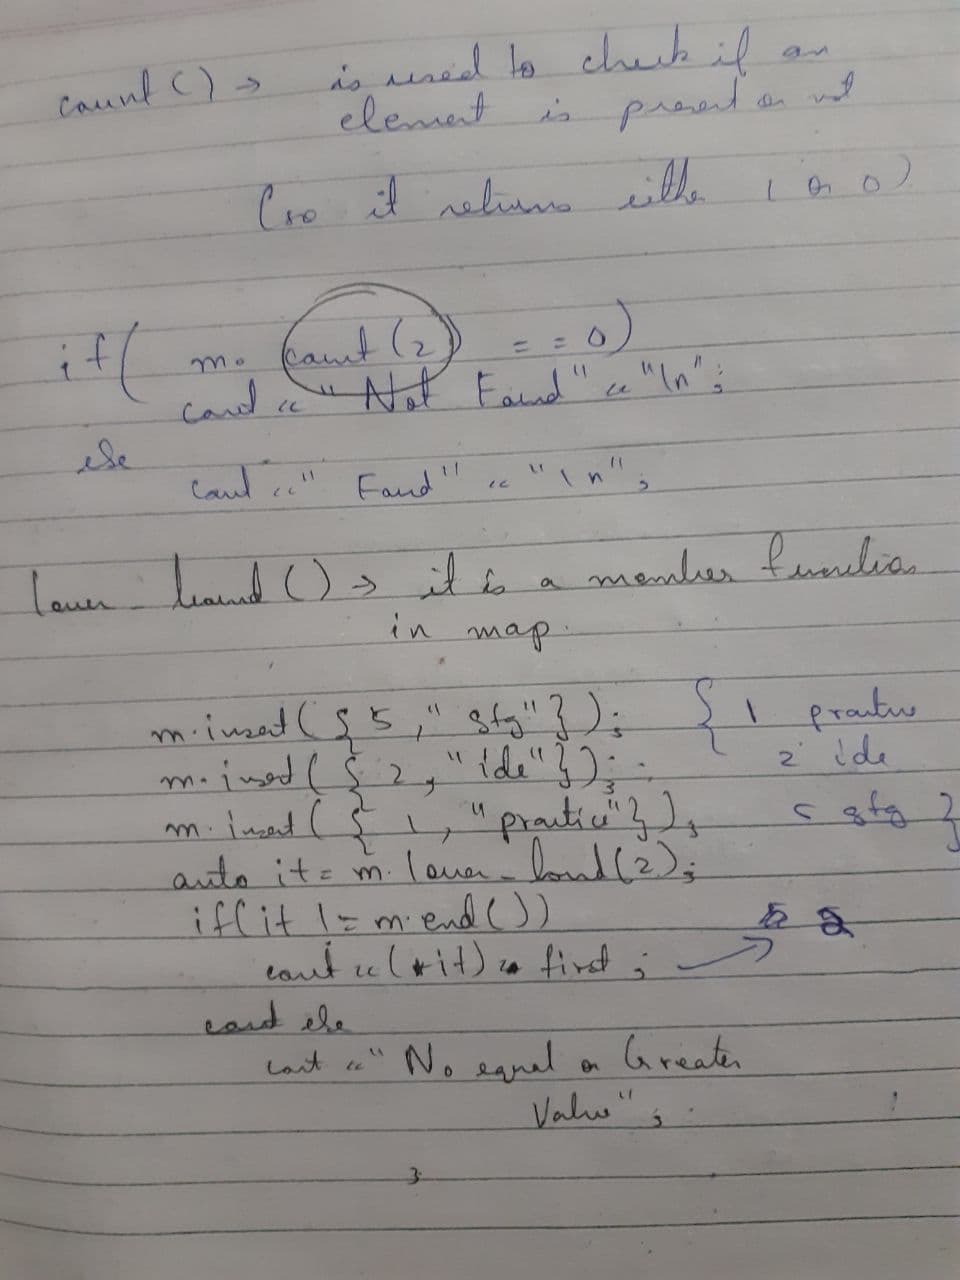 count () → is used to check if an
element is present or not
(so it returns either 1 or 0)
if( m. count (2) == 0)
cout << "Not Found" << "\n";
else
cout << "Found" << "\n";
lower_bound () → it is a member function
in map.
m.insert ({ 5, "gfg" }); { 1 practice
m.insert ({ 2, "ide" }); 2 ide
m.insert ({ 1, "practice" }); 5 gfg }
auto it = m.lower_bound(2);
if(it != m.end())
cout << (*it). first ; → 2
else
cout << "No equal or Greater
Value" ;
}